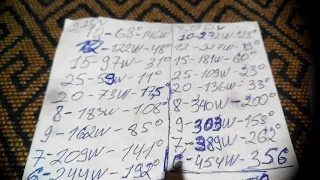 220V
10-68°-146W
12-122W-48°
15-97W-31°
25-59W-11°
20-73W-17,5
8-183W-108°
9-162W-85°
7-209W-141°
6-244W-192°
10-272W-125°
12-227W-83°
15-181W-60°
25-109W-23°
20-136W-33°
8-340W-200°
9-303W-158°
7-389W-262°
6-454W-356